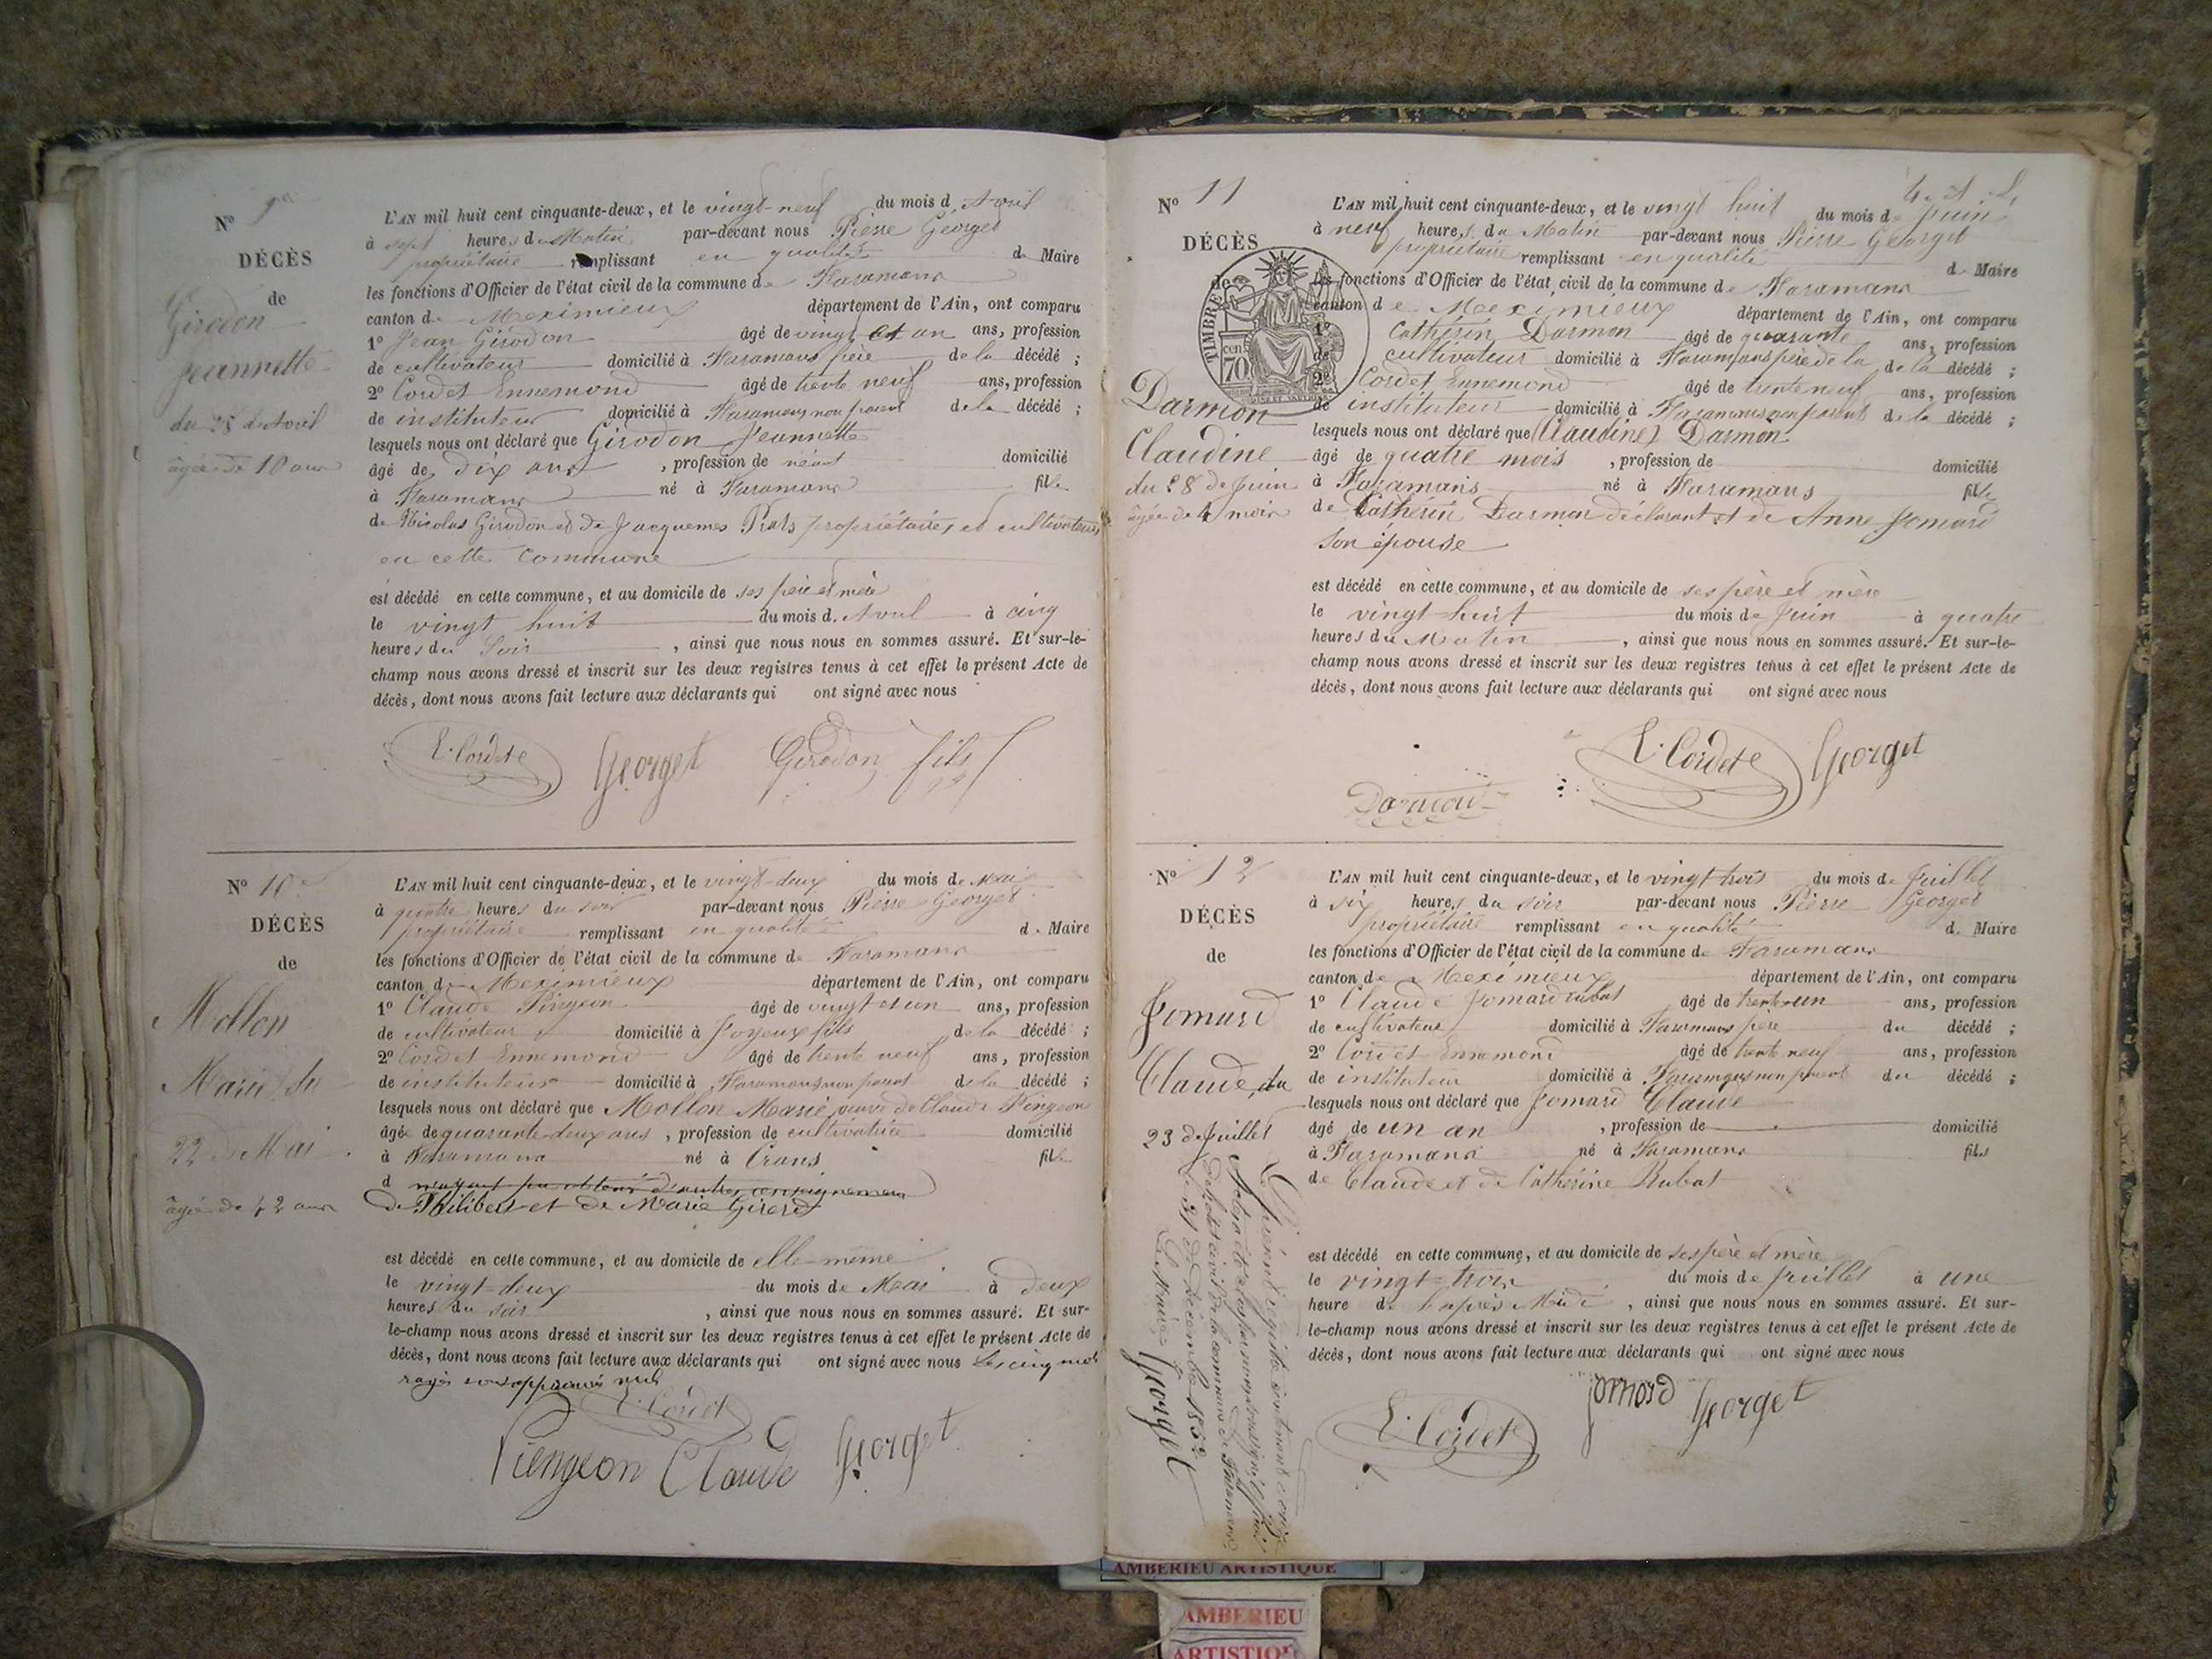 N° 9
DÉCÈS
de
Girodon
Jeannette
du 28 d'Avril
âgée de 10 ans
L'AN mil huit cent cinquante-deux, et le vingt-neuf du mois d'Avril
à sept heures du Matin par-devant nous Pierre Georget
propriétaire remplissant en qualité de Maire
les fonctions d'Officier de l'état civil de la commune de Faramans
canton de Meximieux département de l'Ain, ont comparu
1° Jean Girodon âgé de vingt et un ans, profession
de cultivateur domicilié à Faramans frère de la décédé ;
2° Cordet Ennemond âgé de trente neuf ans, profession
de instituteur domicilié à Faramans non parent de la décédé ;
lesquels nous ont déclaré que Girodon Jeannette
âgé de dix ans, profession de néant domicilié
à Faramans né à Faramans fille
de Nicolas Girodon et de Jacquemes Prats propriétaires et cultivateurs
en cette commune
est décédé en cette commune, et au domicile de ses père et mère
le vingt huit du mois d'Avril à cinq
heures du Soir, ainsi que nous nous en sommes assuré. Et sur-le-
champ nous avons dressé et inscrit sur les deux registres tenus à cet effet le présent Acte de
décès, dont nous avons fait lecture aux déclarants qui ont signé avec nous
E. Cordet Georget Girodon fils
N° 10
DÉCÈS
de
Mollon
Marie du
22 de Mai
âgée de 42 ans
L'AN mil huit cent cinquante-deux, et le vingt-deux du mois de Mai
à quatre heures du soir par-devant nous Pierre Georget
propriétaire remplissant en qualité de Maire
les fonctions d'Officier de l'état civil de la commune de Faramans
canton de Meximieux département de l'Ain, ont comparu
1° Claude Pingeon âgé de vingt et un ans, profession
de cultivateur domicilié à Joyeux fils de la décédé ;
2° Cordet Ennemond âgé de trente neuf ans, profession
de instituteur domicilié à Faramans non parent de la décédé ;
lesquels nous ont déclaré que Mollon Marie veuve de Claude Pingeon
âgée de quarante-deux ans, profession de cultivatrice domicilié
à Faramans né à Crans fille
d n'ayant pu obtenir d'autres renseignemens
de Philibert et de Marie Girerd
est décédé en cette commune, et au domicile de elle-même
le vingt-deux du mois de Mai à deux
heures du soir, ainsi que nous nous en sommes assuré. Et sur-
le-champ nous avons dressé et inscrit sur les deux registres tenus à cet effet le présent Acte de
décès, dont nous avons fait lecture aux déclarants qui ont signé avec nous Les cinq mots
rayés sont approuvés nuls
E. Cordet
Piengeon Claude Georget
N° 11
DÉCÈS
de
TIMBRE
cent
70
Darmon
Claudine
du 28 de Juin
âgée de 4 mois
L'AN mil huit cent cinquante-deux, et le vingt huit du mois de Juin
à neuf heures du Matin par-devant nous Pierre Georget
propriétaire remplissant en qualité de Maire
les fonctions d'Officier de l'état civil de la commune de Faramans
canton de Meximieux département de l'Ain, ont comparu
1° Cathérin Darmon âgé de quarante ans, profession
de cultivateur domicilié à Faramans père de la de la décédé ;
2° Cordet Ennemond âgé de trente neuf ans, profession
de instituteur domicilié à Faramans non parent de la décédé ;
lesquels nous ont déclaré que (Claudine) Darmon
âgé de quatre mois, profession de domicilié
à Faramans né à Faramans fille
de Cathérin Darmon déclarant et de Anne Jomard
son épouse
est décédé en cette commune, et au domicile de ses père et mère
le vingt huit du mois de Juin à quatre
heures du Matin, ainsi que nous nous en sommes assuré. Et sur-le-
champ nous avons dressé et inscrit sur les deux registres tenus à cet effet le présent Acte de
décès, dont nous avons fait lecture aux déclarants qui ont signé avec nous
Darmon E. Cordet Georget
N° 12
DÉCÈS
de
Jomard
Claude, du
23 de Juillet
L'AN mil huit cent cinquante-deux, et le vingt trois du mois de Juillet
à six heures du soir par-devant nous Pierre Georget
propriétaire remplissant en qualité de Maire
les fonctions d'Officier de l'état civil de la commune de Faramans
canton de Meximieux département de l'Ain, ont comparu
1° Claude Jomard rubat âgé de trente un ans, profession
de cultivateur domicilié à Faramans père du décédé ;
2° Cordet Ennemond âgé de trente neuf ans, profession
de instituteur domicilié à Faramans non parent du décédé ;
lesquels nous ont déclaré que Jomard Claude
âgé de un an, profession de domicilié
à Faramans né à Faramans fils
de Claude et de Cathérine Rubat
est décédé en cette commune, et au domicile de ses père et mère
le vingt-trois du mois de Juillet à une
heure de l'après Midi, ainsi que nous nous en sommes assuré. Et sur-
le-champ nous avons dressé et inscrit sur les deux registres tenus à cet effet le présent Acte de
décès, dont nous avons fait lecture aux déclarants qui ont signé avec nous
E. Cordet Jomard Georget
Le présent registre contenant
de l'état civil de la commune de Faramans
le 31 de Décembre 1852
Le Maire Georget
AMBERIEU ARTISTIQUE
AMBERIEU
ARTISTIQUE